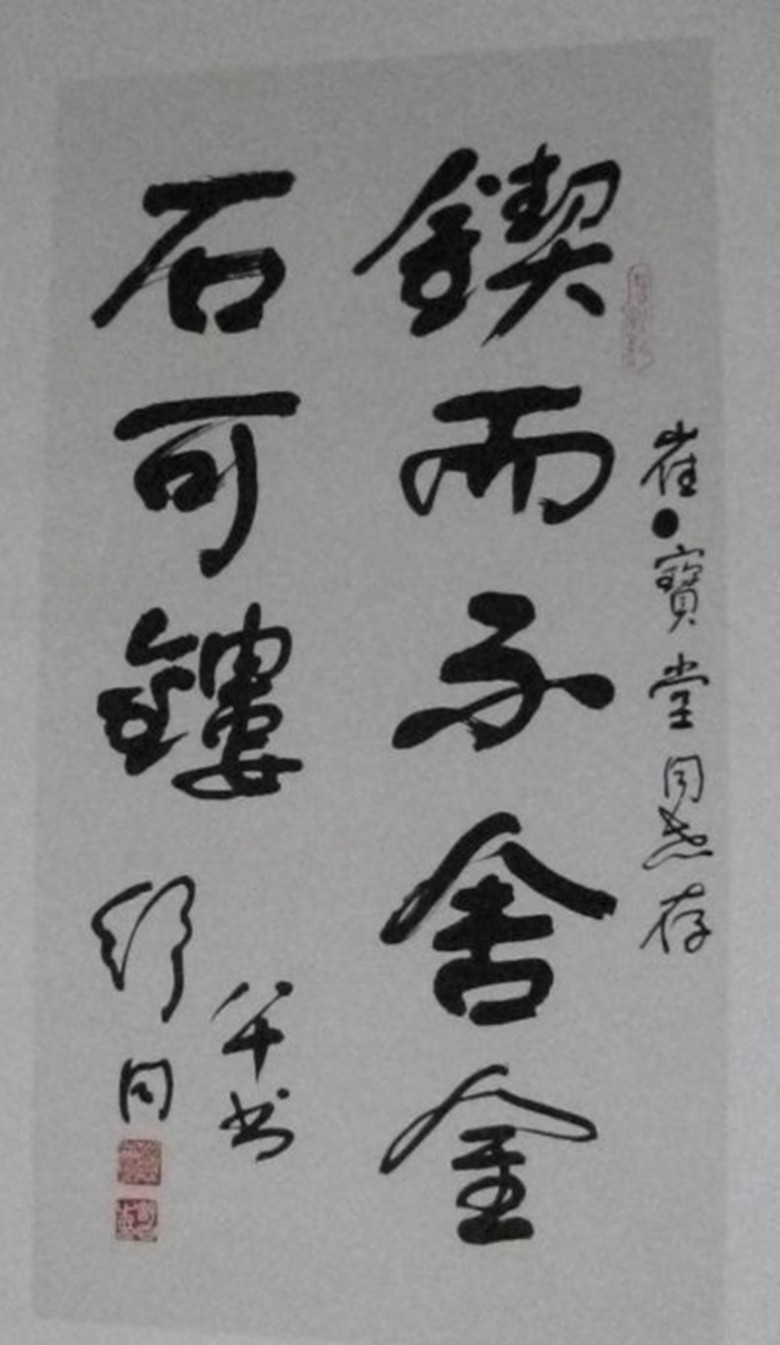 崔•寶堂同志存
鍥而不舍金
石可鏤
八十书
舒同